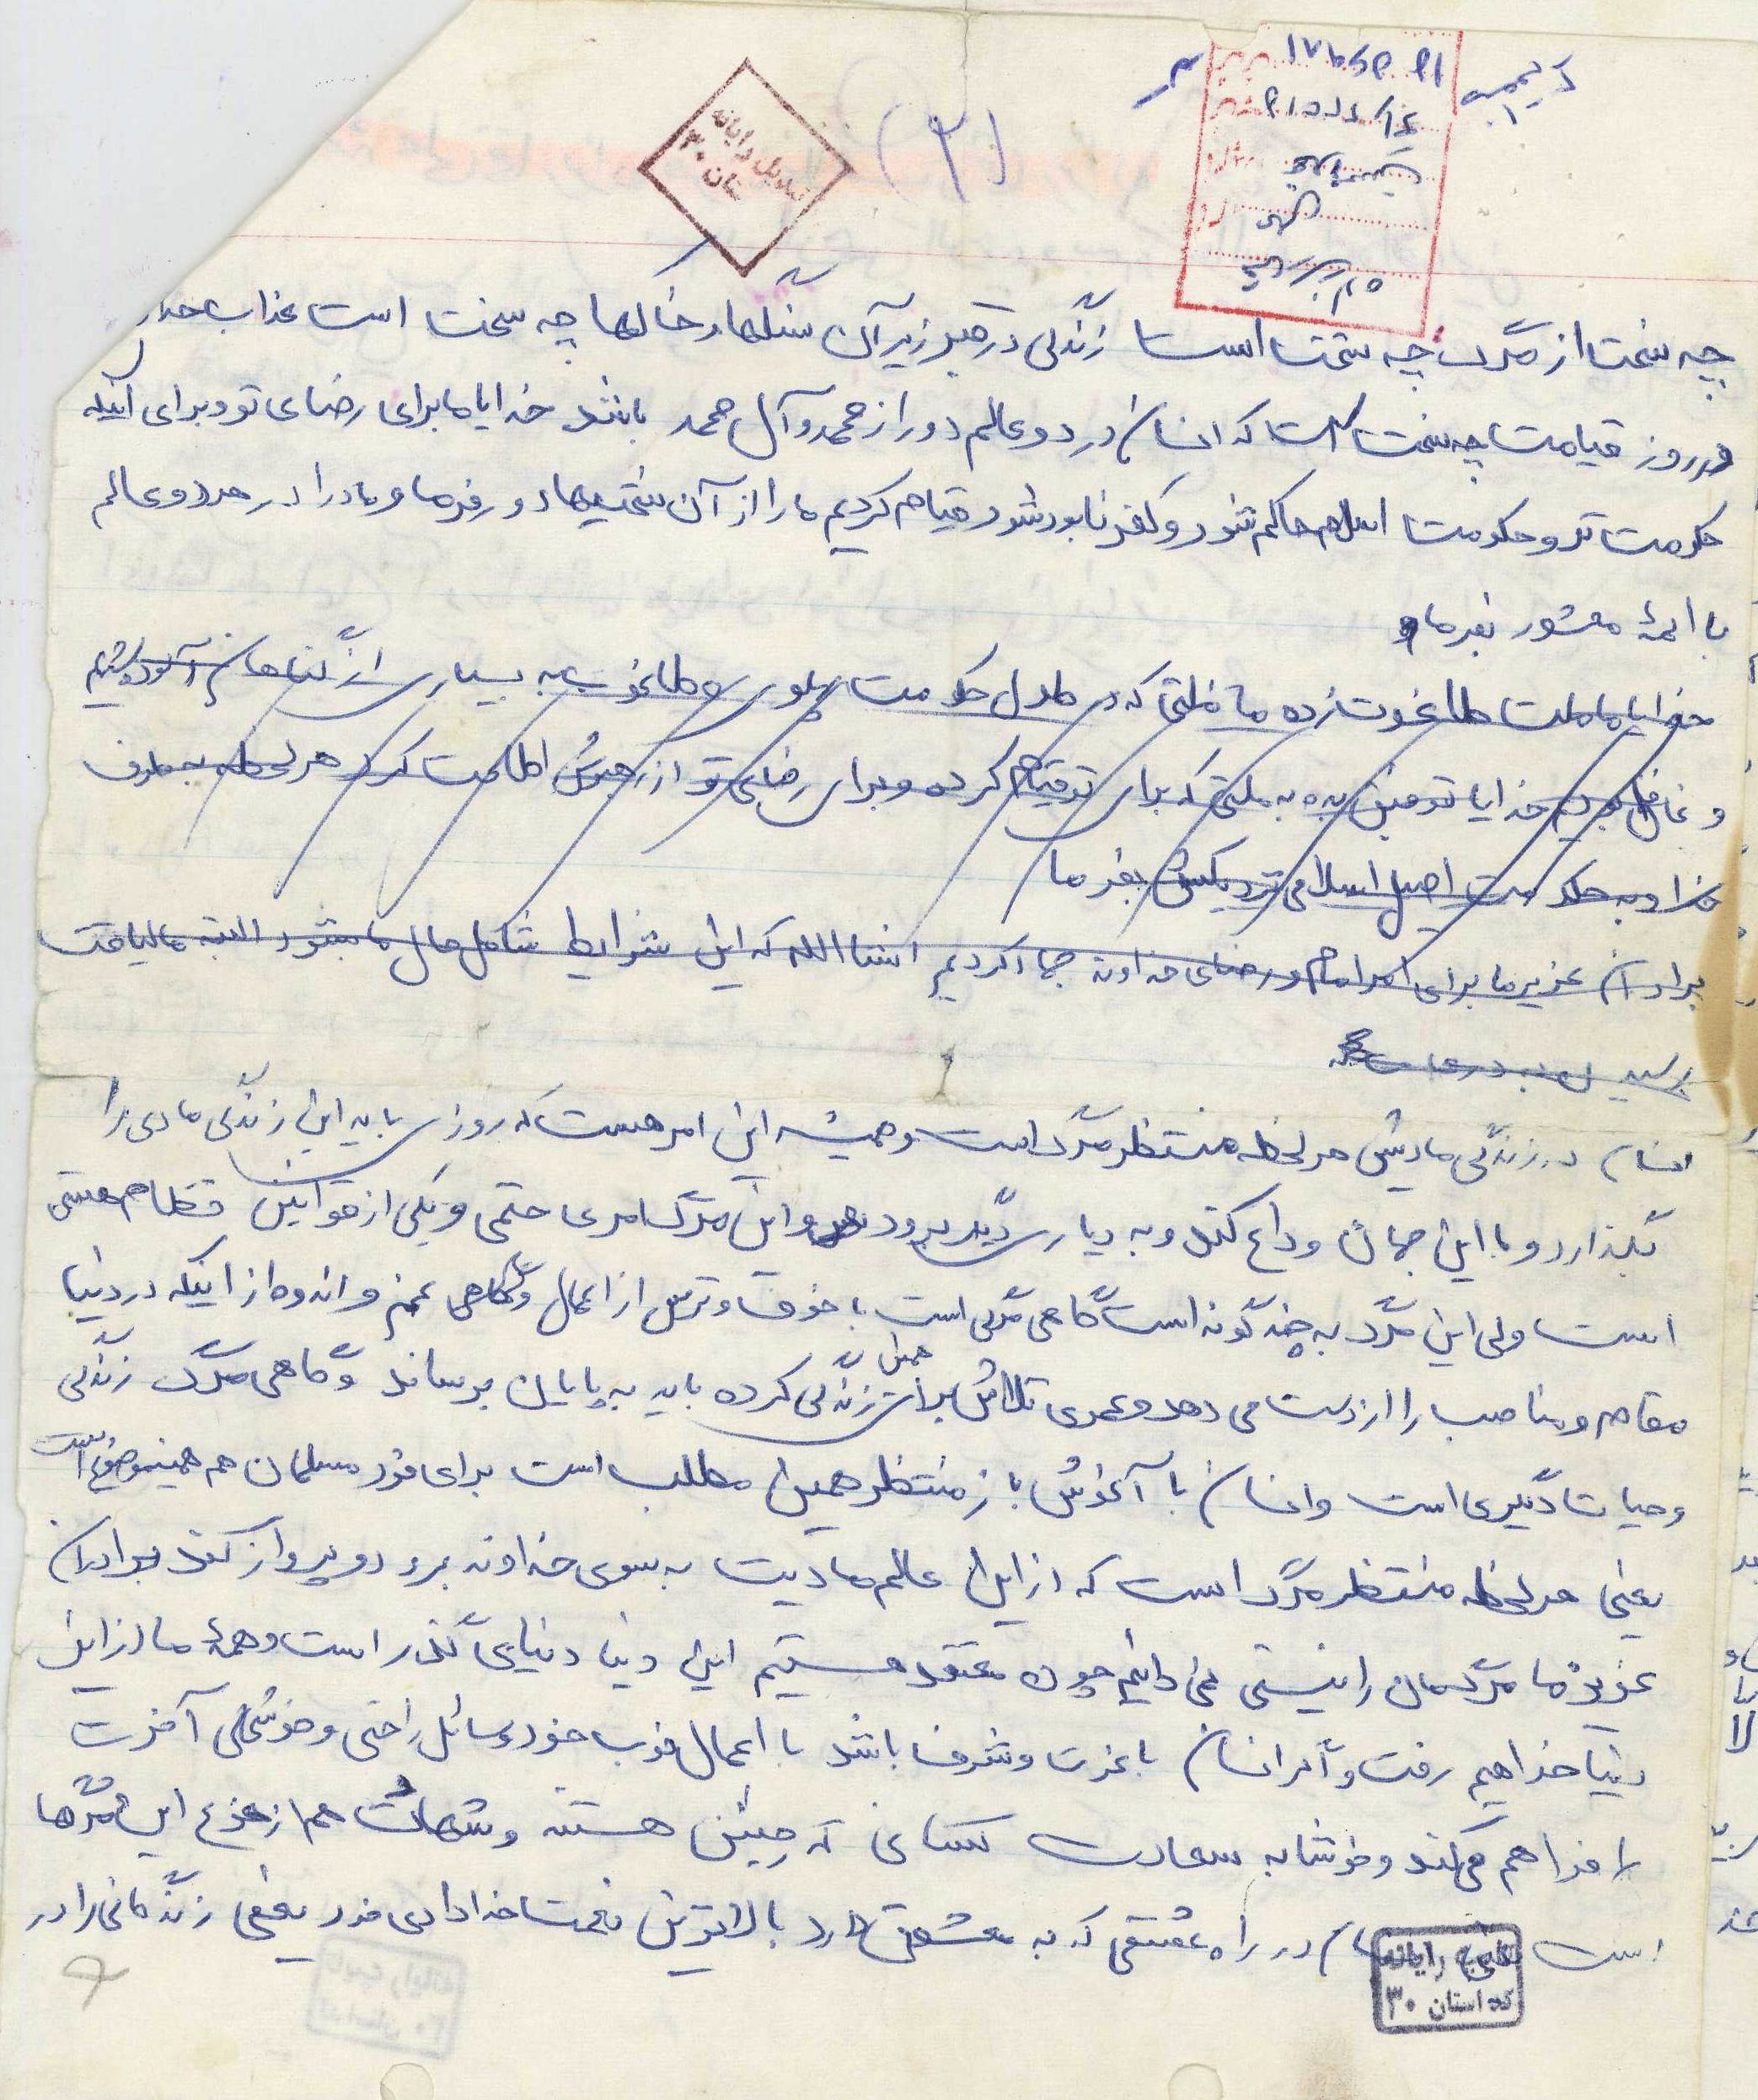 (۲)
تبدیل رایانه
ستان ۳۰
چه سخت از مرگ چه سخت است زندگی در قبر زیر آن سنگها و خاکها چه سخت است عذاب خدا
در روز قیامت چه سخت است که انسان در دو عالم دور از محمد و آل محمد باشد خدایا ما برای رضای تو و برای اینکه
حکومت تو و حکومت اسلام حاکم شود و کفر نابود شود قیام کردیم ما را از آن سختیها دور فرما و ما را در هر دو عالم
با ائمهٔ محشور بفرما
خدایا ما ملت طاغوت زده ما ملتی که در طول حکومت پهلوی و طاغوت به بسیاری از گناهان آلوده شدیم
و غافل بودیم خدایا توفیق بده به ملتی که برای تو قیام کرده و برای رضای تو از رهبرش اطاعت کرد هر لحظه به طرف
خدا و به حکومت اصیل اسلامی نزدیکش بفرما
برادران عزیز ما برای امر امام و رضای خداوند جهاد کردیم انشاالله که این شرایط شامل حال ما بشود البته ما لیاقت
رسیدن به درجات
انسان در زندگی مادیش هر لحظه منتظر مرگ است و همیشه این امر هست که روزی باید این زندگی مادی را
بگذارد و با این جهان وداع کند و به دیاری دیگر برود و این مرگ امری حتمی و یکی از قوانین نظام هستی
است ولی این مرگ به چند گونه است گاهی مرگی است با خوف و ترس از اعمال و گاهی غم و اندوه از اینکه در دنیا
مقام و مناصب را از دست می دهد و عمری تلاش برای همین زندگی کرده باید به پایان برساند و گاهی مرگ زندگی
و حیات دیگری است و انسان با آغوش باز منتظر همین مطلب است برای فرد مسلمان هم همینموضوع است
یعنی هر لحظه منتظر مرگ است که از این عالم مادیت به سوی خداوند برود و پرواز کند برادران
عزیز ما مرگمان را نیستی نمی دانیم چون معتقد هستیم این دنیا دنیای گذر است و همهٔ ما از این
دنیا خواهیم رفت و اگر انسان با عزت و شرف باشد با اعمال خوب خود وسائل راحتی و خوشحالی آخرت
را فراهم میکند و خوشا به سعادت کسانی که چنین هستند و شهادت هم از نوع این مرگها
است انسان در راه عشقی که به معشوق دارد بالاترین نعمت خدادادی خود یعنی زندگانی را در
رایانه
کد استان ۳۰